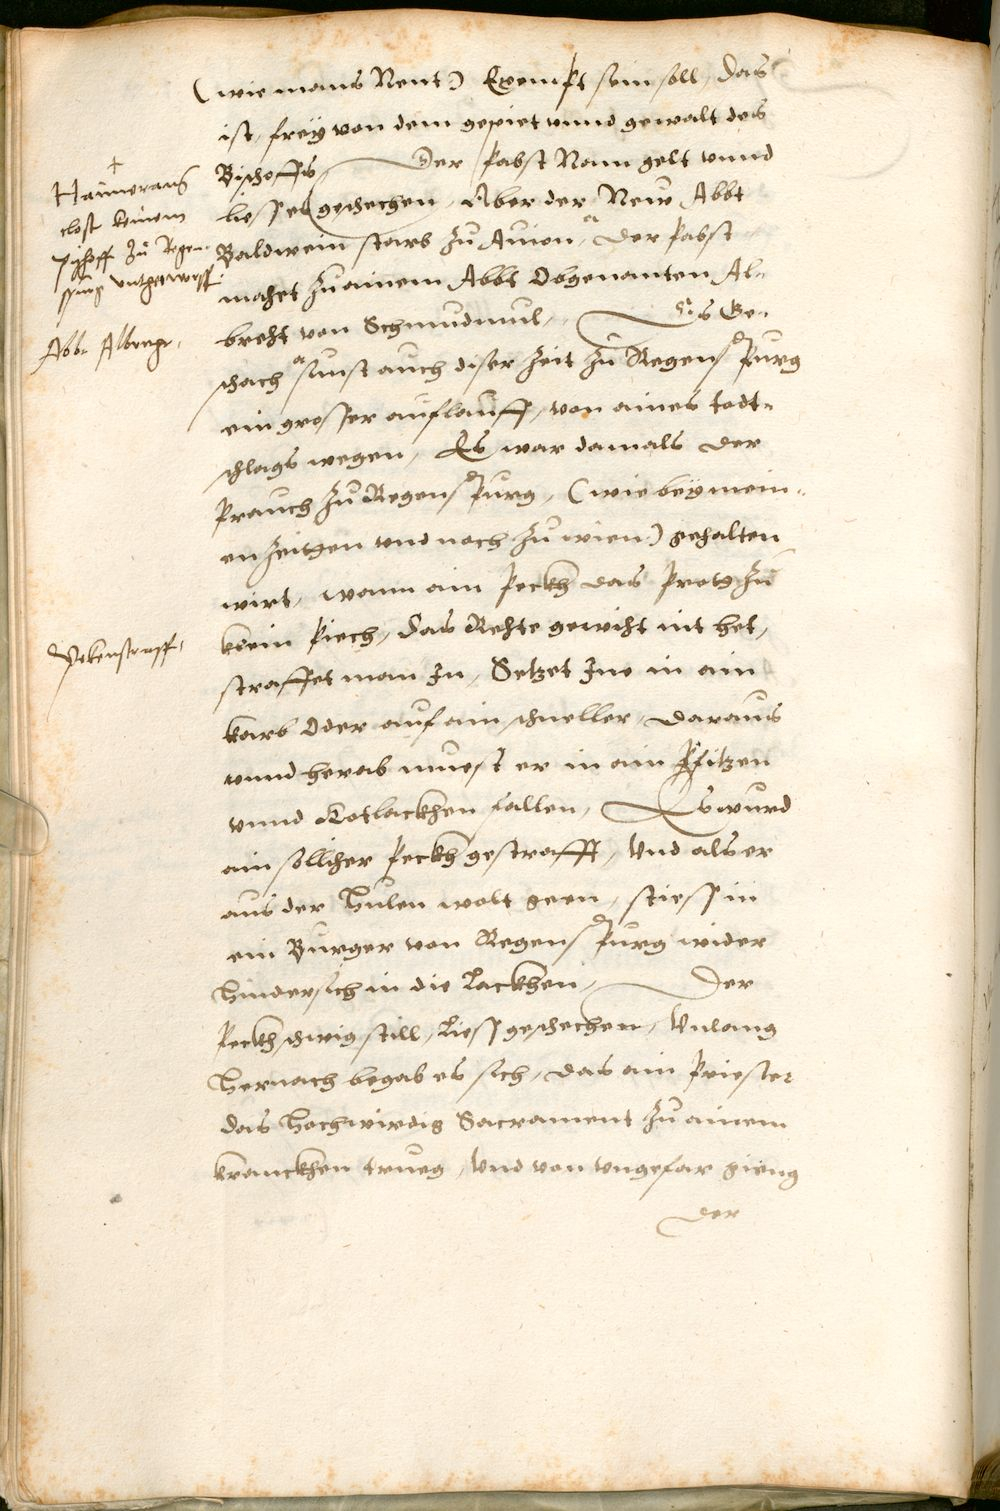 (wie mans Nent) Exempt sein soll, das
ist, frey von dem gepiet vnnd gewalt des
Bischoffs, Der Pabst Nam gelt vnnd
liesse geschechen, Aber der New Abbt
Baldwein starb zu Auion, Der Pabst
machet zu ainem Abbt Obgenanten Al-
brecht von Schmudmul, Es Ge-
schach sunst auch diser zeit zu Regenspurg
ein grosser auflauff, von aines todt-
schlags wegen, Es war damals der
Prauch zu Regenspurg, (wie bey mein-
en zeitgen vnd noch zu wien) gehalten
wirt, wann ain Peckh das Prott zu
klein Piech, das Rechte gewicht nit het,
straffet man In, Setzet Ine in ain
korb oder auf ain schneller, daraus
vnnd herab muest er in ain Pfitzen
vnnd Kotlackhen fallen, Es wurd
ain sollicher Peckh gestrafft, Vnd als er
aus der Hulen wolt geen, stiess in
ein Burger von Regenspurg wider
hindersich in die Lackhen, Der
Peckh schwig still, Liess geschechen, Vnlang
hernach begab es sich, das ain Priester
das hochwirdig Sacrament zu ainem
kranckhen trueg, Vnd von vngefar gieng
der
Haimerans
clost keinem
Pischoff zu Regen-
spurg vntgerworff
Abb. Albrecht
Pekenstraff